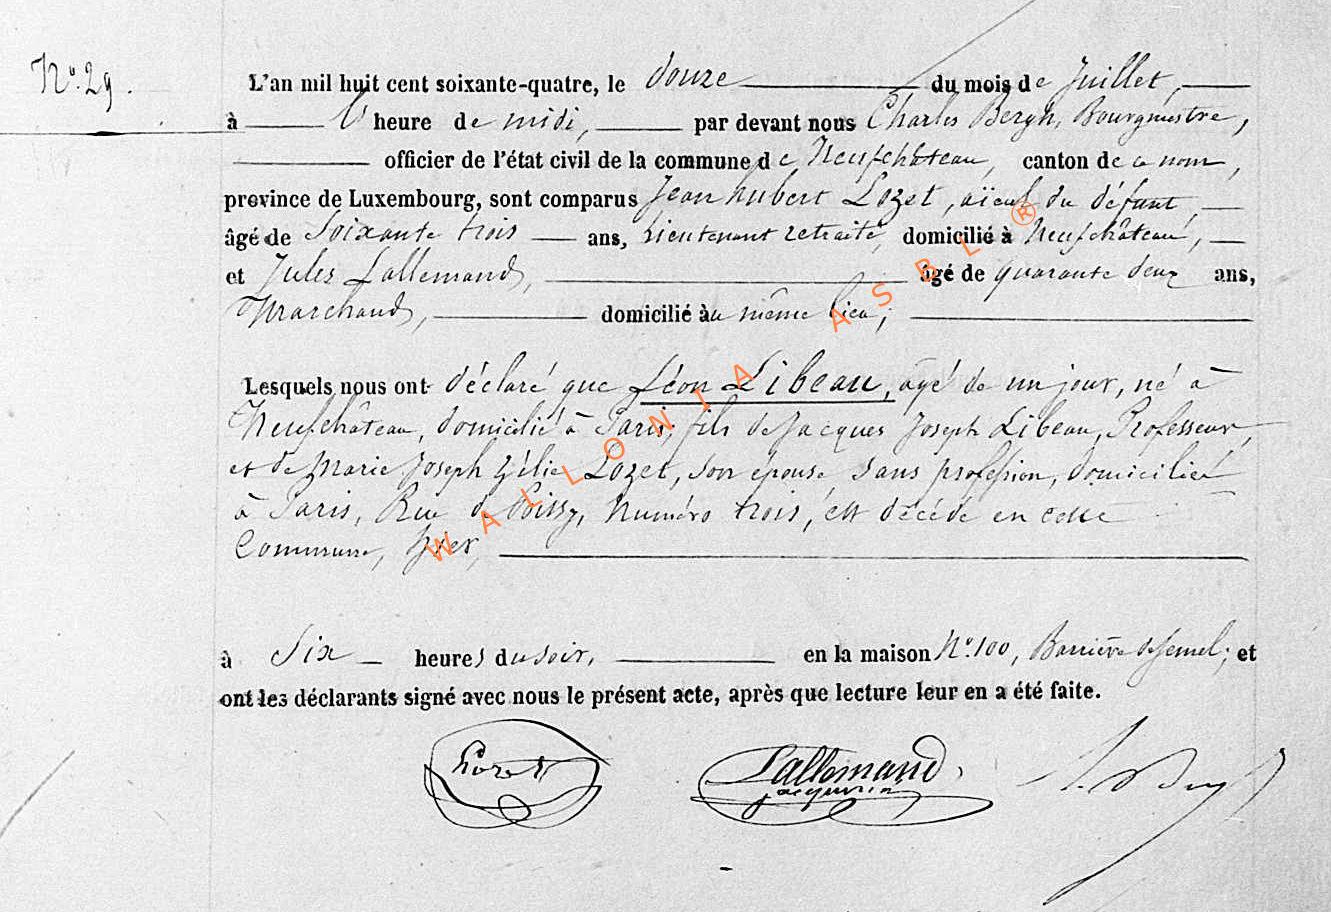 N°. 29.
L'an mil huit cent soixante-quatre, le douze du mois de Juillet,
à l'heure de midi, par devant nous Charles Bergh, Bourgmestre,
officier de l'état civil de la commune de Neufchâteau, canton de ce nom,
province de Luxembourg, sont comparus Jean hubert Lozet, aïeul du défunt,
âgé de Soixante trois ans, Lieutenant retraité, domicilié à Neufchâteau,
et Jules Lallemand, âgé de quarante deux ans,
Marchand, domicilié àu même lieu;
Lesquels nous ont déclaré que Léon Libeau, âgé de un jour, né à
Neufchâteau, domicilié à Paris, fils de Jacques Joseph Libeau, Professeur,
et de Marie Joseph Zélie Lozet, son épouse, sans profession, domiciliés
à Paris, Rue de Poissy, Numéro trois, est décédé en cette
Commune, hier,
à Six heures du soir, en la maison N°. 100, Barrière de Semel; et
ont les déclarants signé avec nous le présent acte, après que lecture leur en a été faite.
Lozet Lallemand
WALLONIA ASBL ®